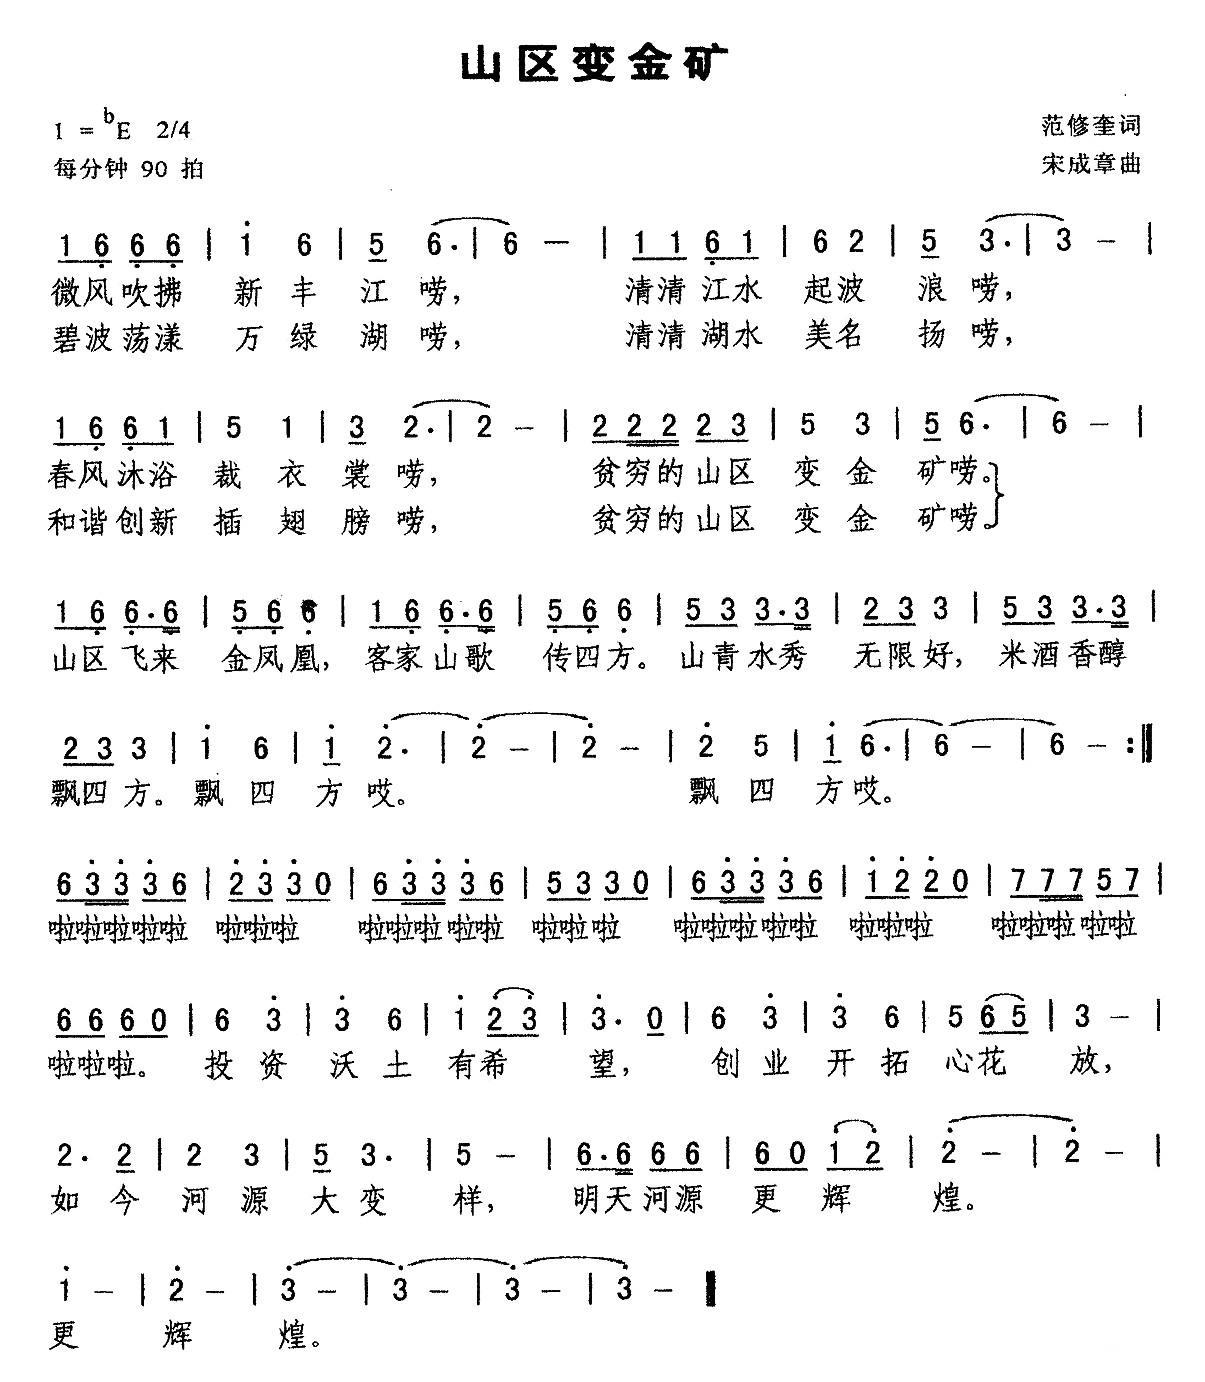 山区变金矿
1 = ᵇE 2/4
范修奎词
每分钟 90 拍
宋成章曲
1 6 6 6 | 1 6 | 5 6. | 6 — | 1 1 6 1 | 6 2 | 5 3. | 3 — |
微风吹拂 新丰江唠， 清清江水 起波浪唠，
碧波荡漾 万绿湖唠， 清清湖水 美名扬唠，
1 6 6 1 | 5 1 | 3 2. | 2 — | 2 2 2 2 3 | 5 3 | 5 6. | 6 — |
春风沐浴 裁衣裳唠， 贫穷的山区 变金矿唠。
和谐创新 插翅膀唠， 贫穷的山区 变金矿唠。
1 6 6. 6 | 5 6 6 | 1 6 6. 6 | 5 6 6 | 5 3 3. 3 | 2 3 3 | 5 3 3. 3 |
山区飞来 金凤凰， 客家山歌 传四方。 山青水秀 无限好， 米酒香醇
2 3 3 | 1 6 | 1 2. | 2 — | 2 — | 2 5 | 1 6. | 6 — | 6 — :‖
飘四方。 飘四方哎。 飘四方哎。
6 3 3 3 6 | 2 3 3 0 | 6 3 3 3 6 | 5 3 3 0 | 6 3 3 3 6 | 1 2 2 0 | 7 7 7 5 7 |
啦啦啦啦啦 啦啦啦 啦啦啦啦啦 啦啦啦 啦啦啦啦啦 啦啦啦 啦啦啦啦啦
6 6 6 0 | 6 3 | 3 6 | 1 2 3 | 3. 0 | 6 3 | 3 6 | 5 6 5 | 3 — |
啦啦啦。 投资沃土有希望， 创业开拓心花放，
2. 2 | 2 3 | 5 3. | 5 — | 6. 6 6 6 | 6 0 1 2 | 2 — | 2 — |
如今河源大变样， 明天河源更辉煌。
1 — | 2 — | 3 — | 3 — | 3 — | 3 — ‖
更辉煌。